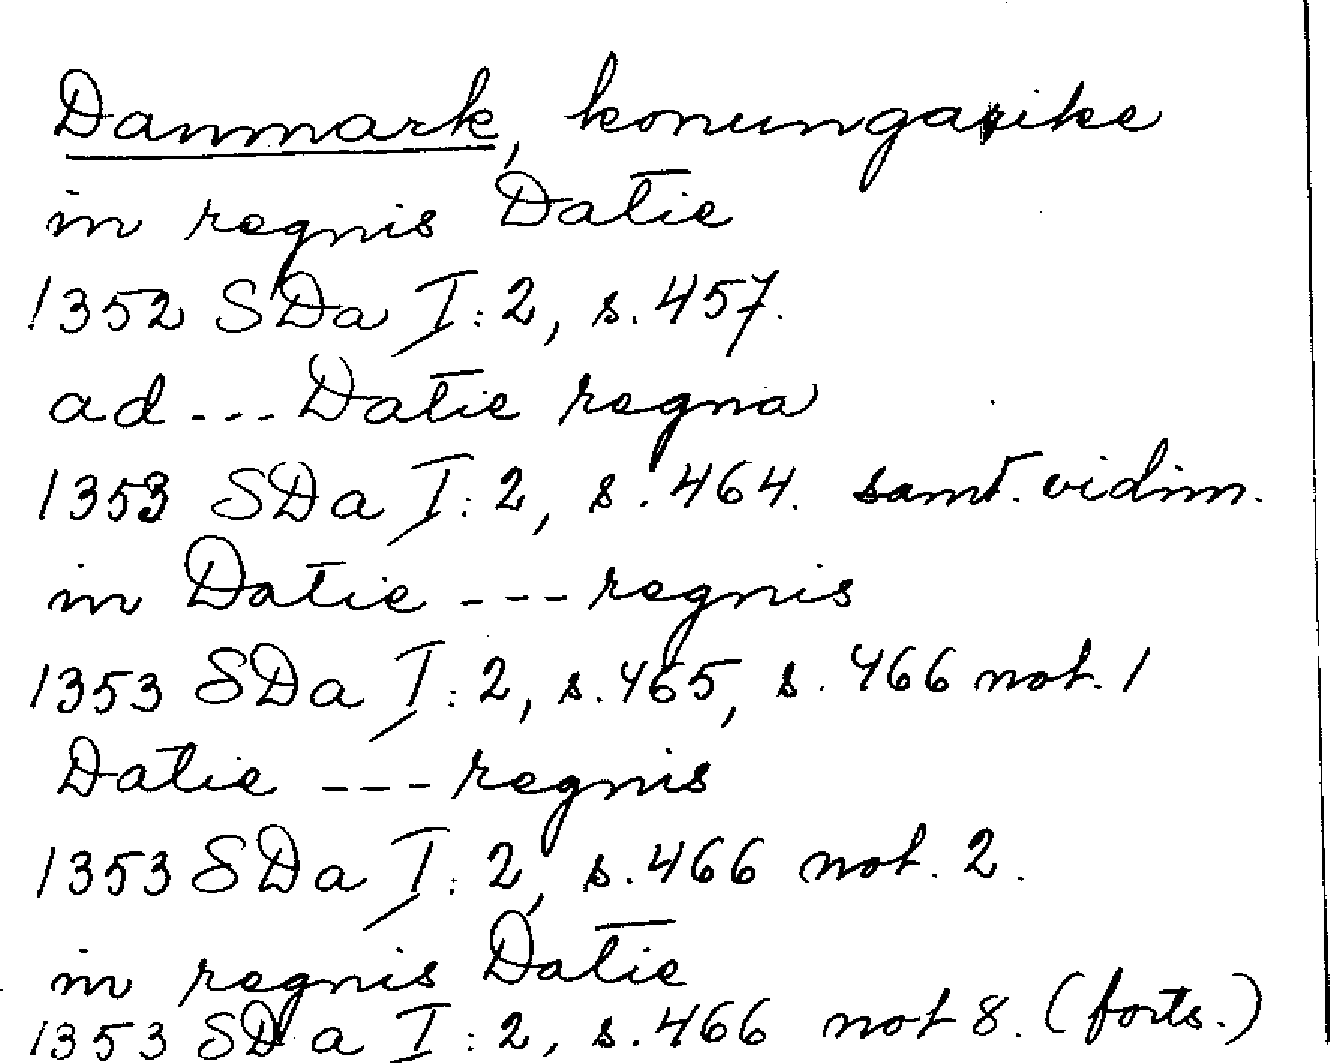 Danmark, konungarike
in regnis Datie
1352 SDa I:2, s. 457.
ad --- Datie regna
1353 SDa I:2, s. 464. samt. vidim.
in Datie --- regnis
1353 SDa I:2, s. 465, s. 466 not. 1
Datie --- regnis
1353 SDa I:2, s. 466 not. 2.
in regnis Datie
1353 SDa I:2, s. 466 not 8. (forts.)